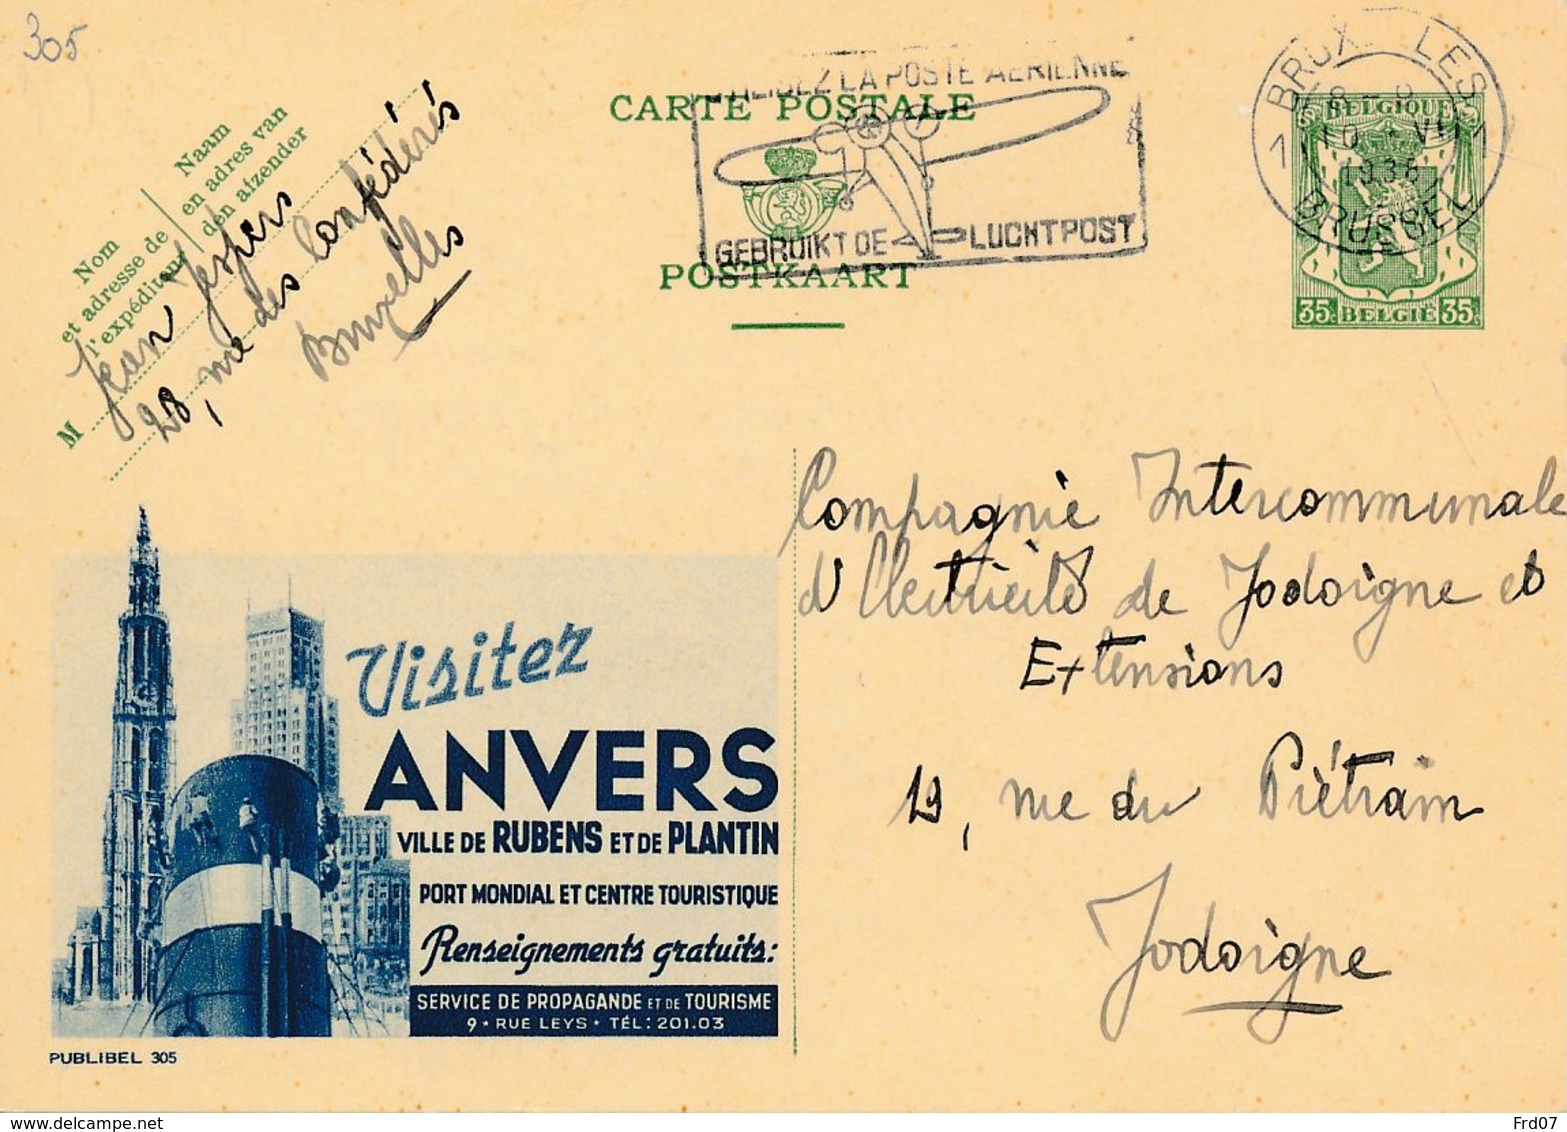 305
CARTE POSTALE
LA POSTE AÉRIENNE
GEBRUIKT DE LUCHTPOST
POSTKAART
BRUX LES
1 1
10 VI
1938
BRUSSEL
BELGIQUE
35c BELGIË 35c
Nom
et adresse de
l'expéditeur
Naam
en adres van
den afzender
M Jean Jespers
28, rue des Confédérés
Bruxelles
Compagnie Intercommunale
d'Electricité de Jodoigne et
Extensions
19, rue du Piétrain
Jodoigne
Visitez
ANVERS
VILLE DE RUBENS ET DE PLANTIN
PORT MONDIAL ET CENTRE TOURISTIQUE
Renseignements gratuits:
SERVICE DE PROPAGANDE ET DE TOURISME
9 * RUE LEYS * TÉL: 201.03
PUBLIBEL 305
delcampe.net
Frd07